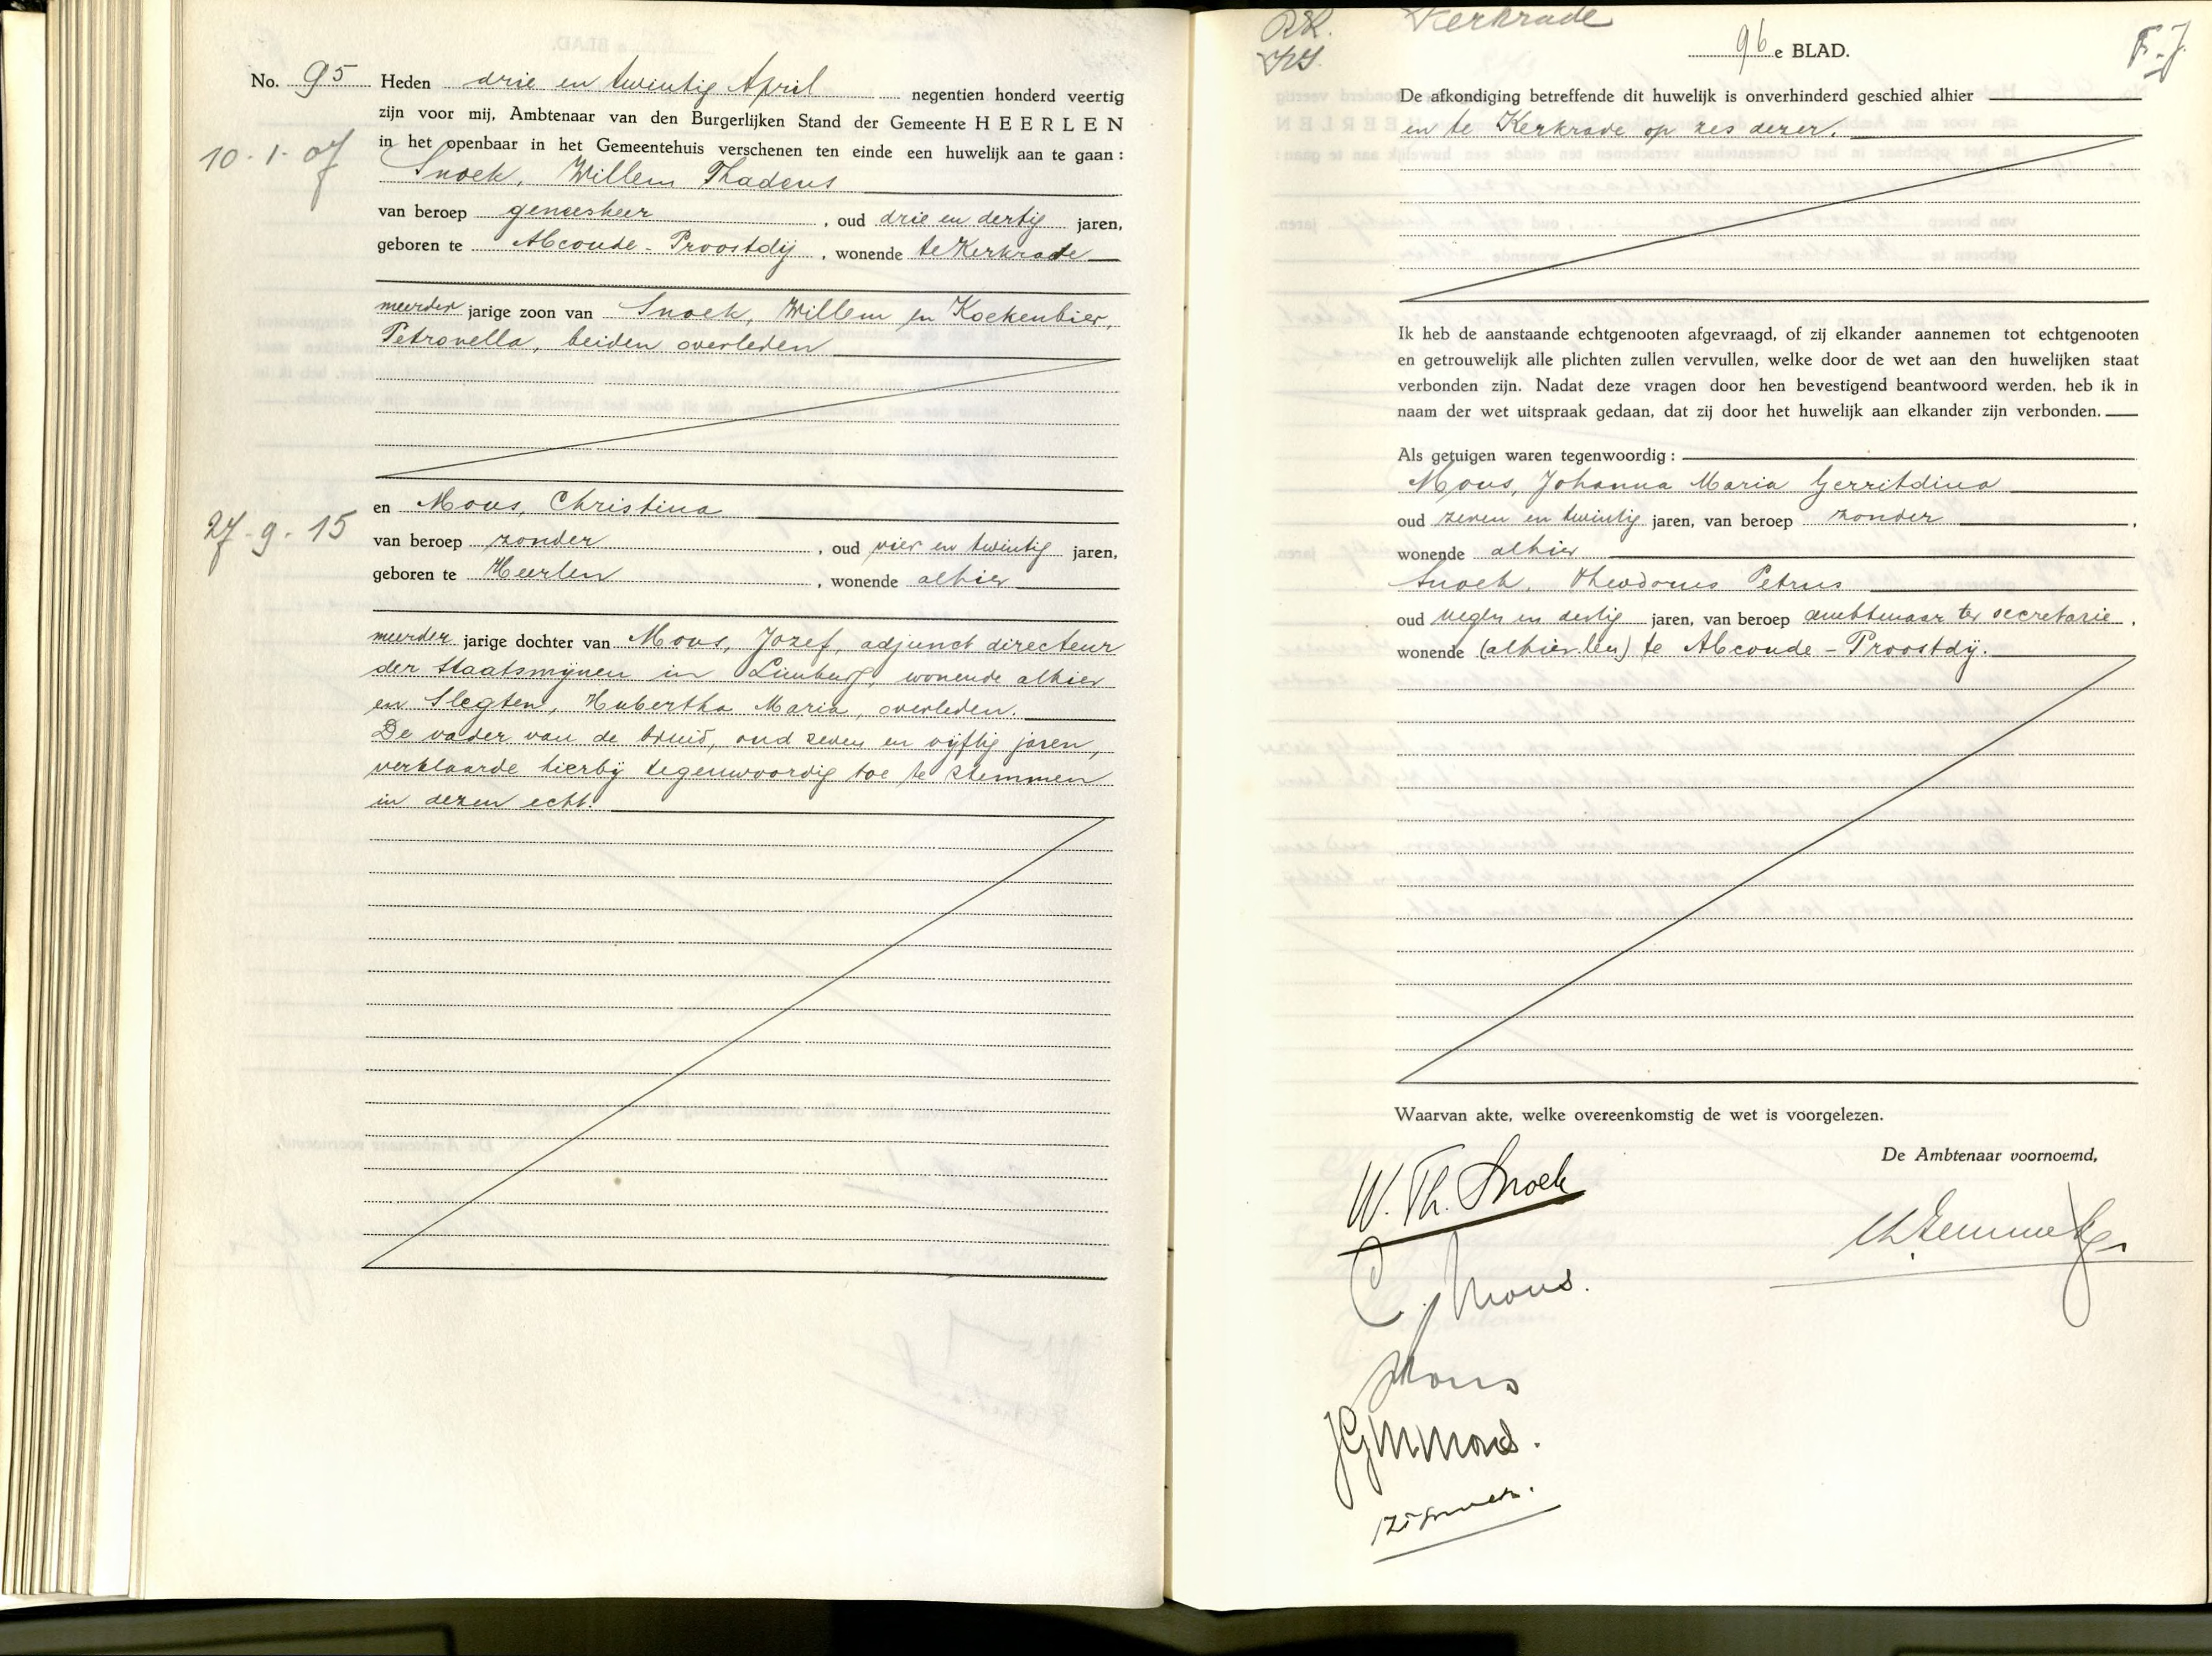 No. 95 Heden drie en twintig April negentien honderd veertig
zijn voor mij, Ambtenaar van den Burgerlijken Stand der Gemeente HEERLEN
in het openbaar in het Gemeentehuis verschenen ten einde een huwelijk aan te gaan:
10-1-07
Snoek, Willem Thadeus
van beroep geneesheer, oud drie en dertig jaren,
geboren te Abcoude-Proostdij, wonende te Kerkrade
meerder jarige zoon van Snoek, Willem en Kockenbier,
Petronella, beiden overleden
27-9-15
en Mous, Christina
van beroep zonder, oud vier en twintig jaren,
geboren te Heerlen, wonende alhier
meerder jarige dochter van Mous, Jozef, adjunct directeur
der Staatsmijnen in Limburg, wonende alhier
en Slegten, Hubertha Maria, overleden.
De vader van de bruid, oud zeven en vijftig jaren,
verklaarde hierbij tegenwoordig toe te stemmen
in dezen echt.
Kerkrade
96e BLAD.
F.J.
De afkondiging betreffende dit huwelijk is onverhinderd geschied alhier
en te Kerkrade op zes dezer.
Ik heb de aanstaande echtgenooten afgevraagd, of zij elkander aannemen tot echtgenooten
en getrouwelijk alle plichten zullen vervullen, welke door de wet aan den huwelijken staat
verbonden zijn. Nadat deze vragen door hen bevestigend beantwoord werden, heb ik in
naam der wet uitspraak gedaan, dat zij door het huwelijk aan elkander zijn verbonden.
Als getuigen waren tegenwoordig:
Mous, Johanna Maria Gerritdina
oud zeven en twintig jaren, van beroep zonder,
wonende alhier
Snoek, Theodorus Petrus
oud negen en dertig jaren, van beroep ambtenaar ter secretarie,
wonende (alhier.len) te Abcoude-Proostdij.
Waarvan akte, welke overeenkomstig de wet is voorgelezen.
De Ambtenaar voornoemd,
W. Th. Snoek
C. Mous.
JMous
JGMMous.